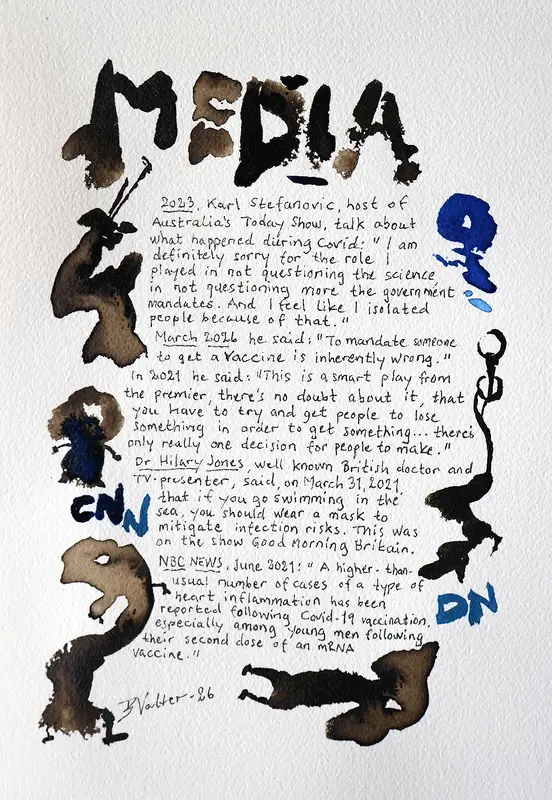 MEDIA
2023, Karl Stefanovic, host of
Australia's Today Show, talk about
what happened during Covid: "I am
definitely sorry for the role I
played in not questioning the science
in not questioning more the government
mandates. And I feel like I isolated
people because of that."
March 2026 he said: "To mandate someone
to get a vaccine is inherently wrong."
In 2021 he said: "This is a smart play from
the premier, there's no doubt about it, that
you have to try and get people to lose
something in order to get something... there's
only really one decision for people to make."
Dr Hilary Jones, well known British doctor and
TV-presenter, said, on March 31, 2021,
that if you go swimming in the
sea, you should wear a mask to
mitigate infection risks. This was
on the show Good Morning Britain.
NBC NEWS, June 2021: "A higher-than-
usual number of cases of a type of
heart inflammation has been
reported following Covid-19 vaccination,
especially among young men following
their second dose of an mRNA
vaccine."
CNN
DN
BValter-26